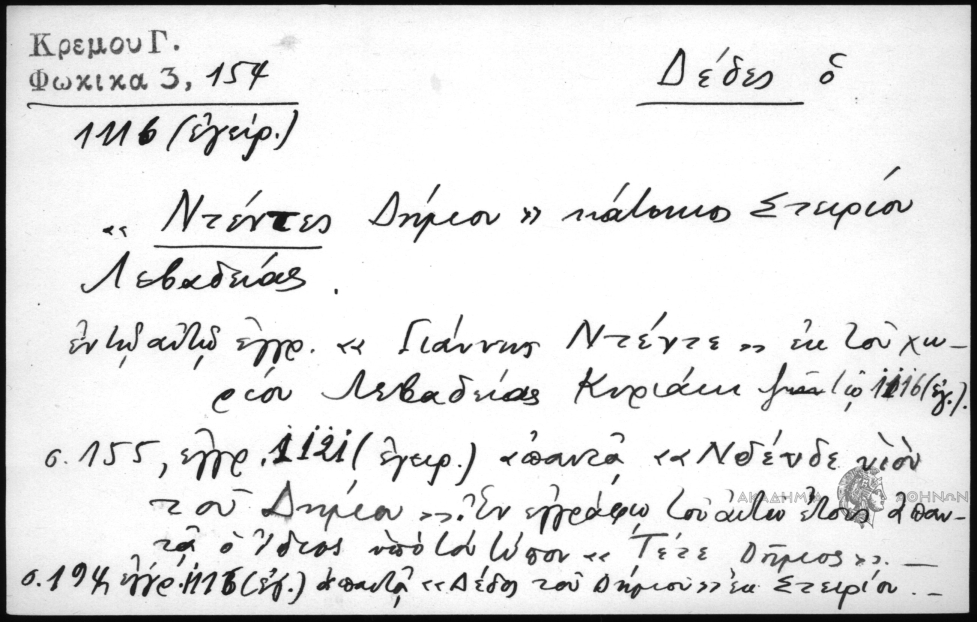 Κρεμου Γ.
Φωκικα 3, 154
Δέδες ὁ
1116 (ἐγείρ.)
« Ντέντες Δήμιου » κάτοικος Στειρίου
Λεβαδείας.
ἐν τῷ αὐτῷ ἐγγρ. « Γιάννης Ντέντε » ἐκ τοῦ χω-
ρίου Λεβαδείας Κυριάκι 1116 (ἐγ.).
σ. 155, ἐγγρ. 1121 (ἐγειρ.) ἀπαντᾶ « Νδένδε υἱὸν
τοῦ Δήμιου ». Ἐν ἐγγράφῳ τοῦ αὐτοῦ ἔτους ἀπαν-
τᾷ ὁ ἴδιος ὑπὸ τὸν τύπον « Τέτε Δῆμιος ». —
σ. 194, ἐγγρ. 1116 (ἐγ.) ἀπαντᾷ « Δέδος τοῦ Δήμιου » ἐκ Στειρίου. —
ΑΚΑΔΗΜΙΑ ΑΘΗΝΩΝ